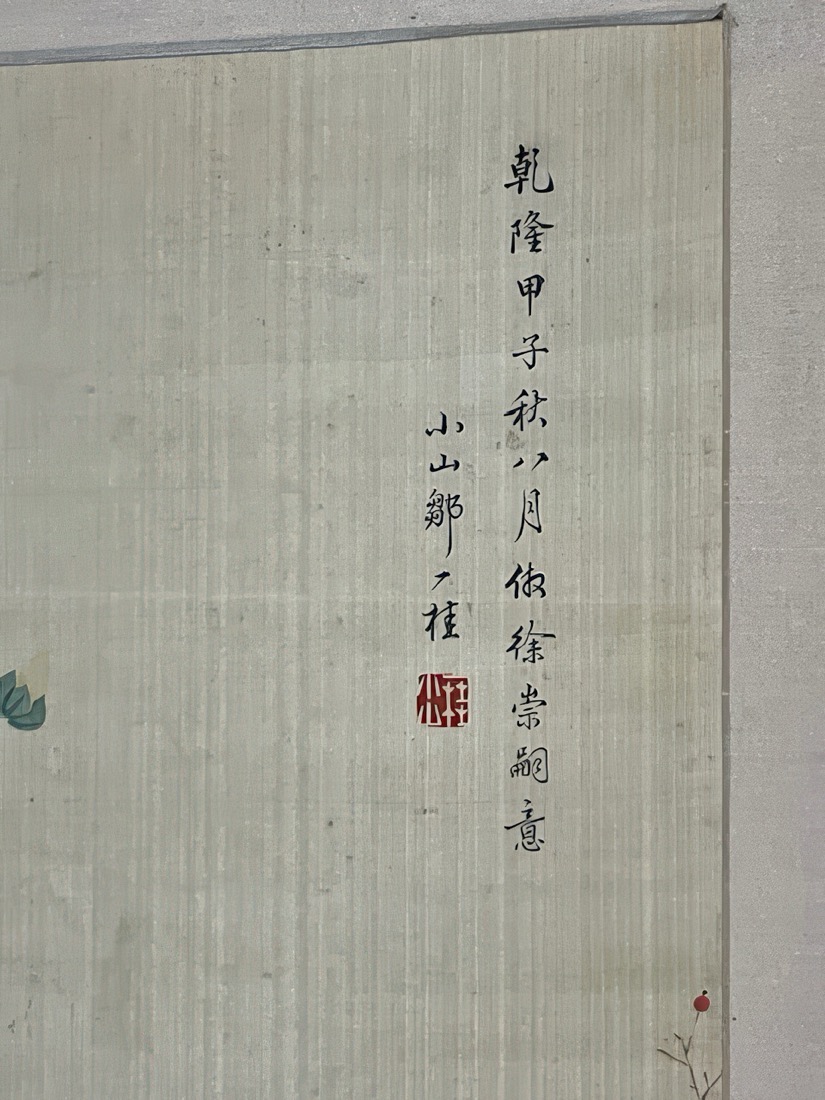 乾隆甲子秋八月倣徐崇嗣意
小山鄒一桂